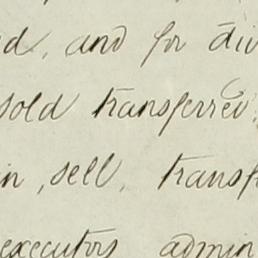 d, and for div
sold transferred,
in, sell, transf
executors admin